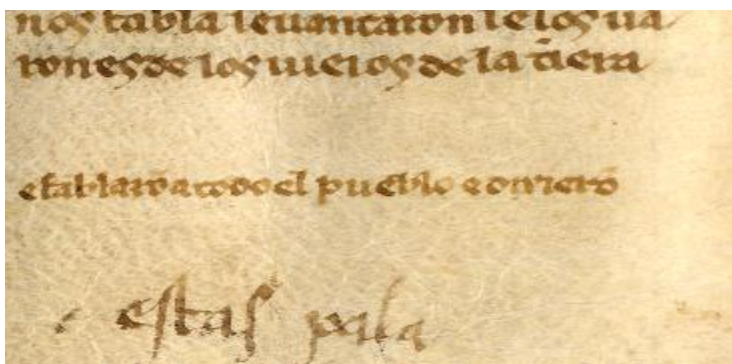 nos fabla leuantaron se los ua
rones de los uieios de la tiera
e fablarō a todo el pueblo e dixierō
estas pala